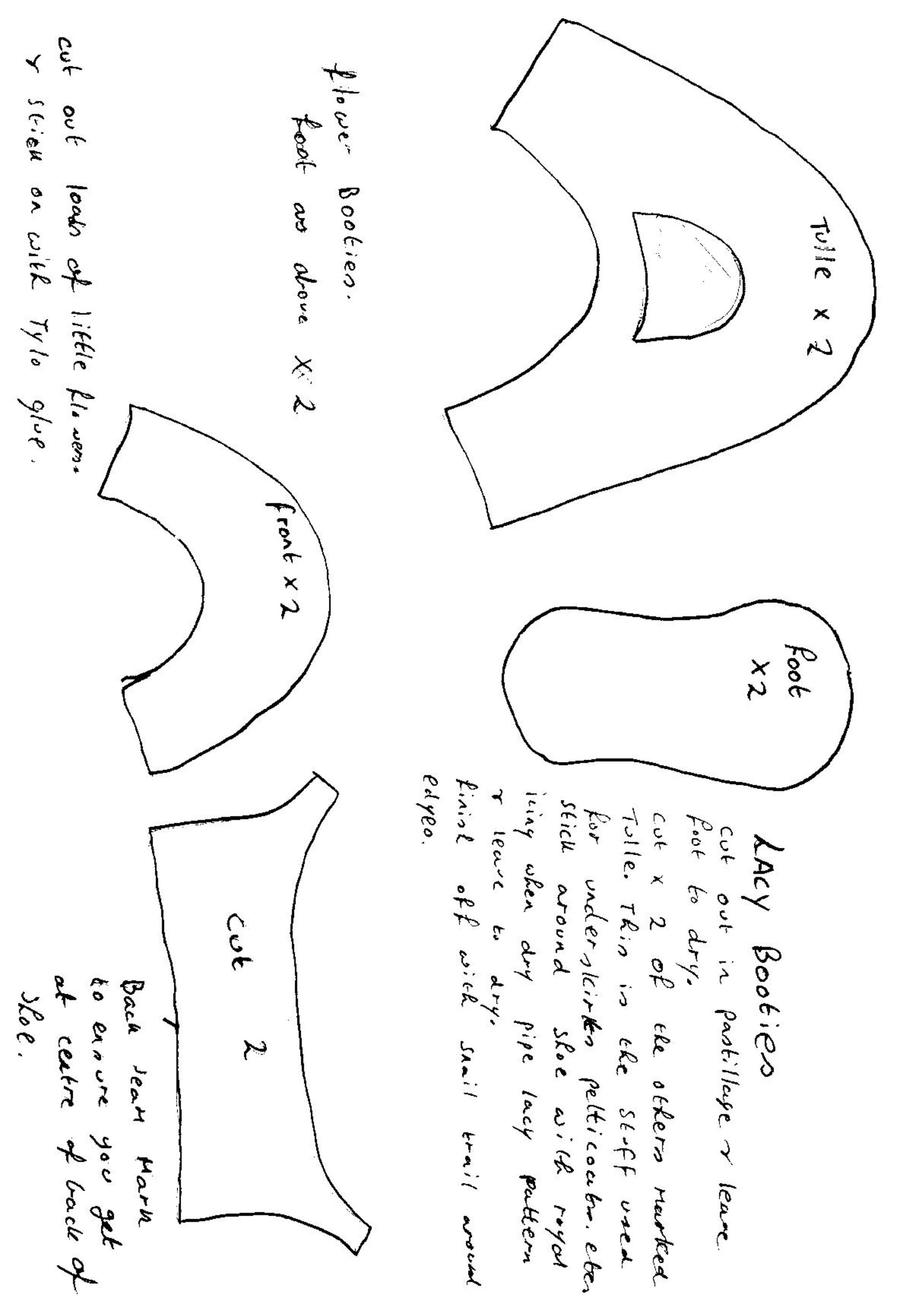 Tulle x 2
Foot
x2
LAcy Booties
cut out in pastillage & leave
foot to dry.
cut x 2 of the others marked
Tulle. This is the stuff used
for underskirts petticoats. etc
stick around shoe with royal
icing when dry pipe lacy pattern
& leave to dry.
finish off with snail trail around
edges.
Flower Booties.
foot as above x 2
front x 2
cut 2
cut out loads of little flowers.
& stick on with Tylo glue.
Back seam Mark
to ensure you get
at centre of back of
shoe.